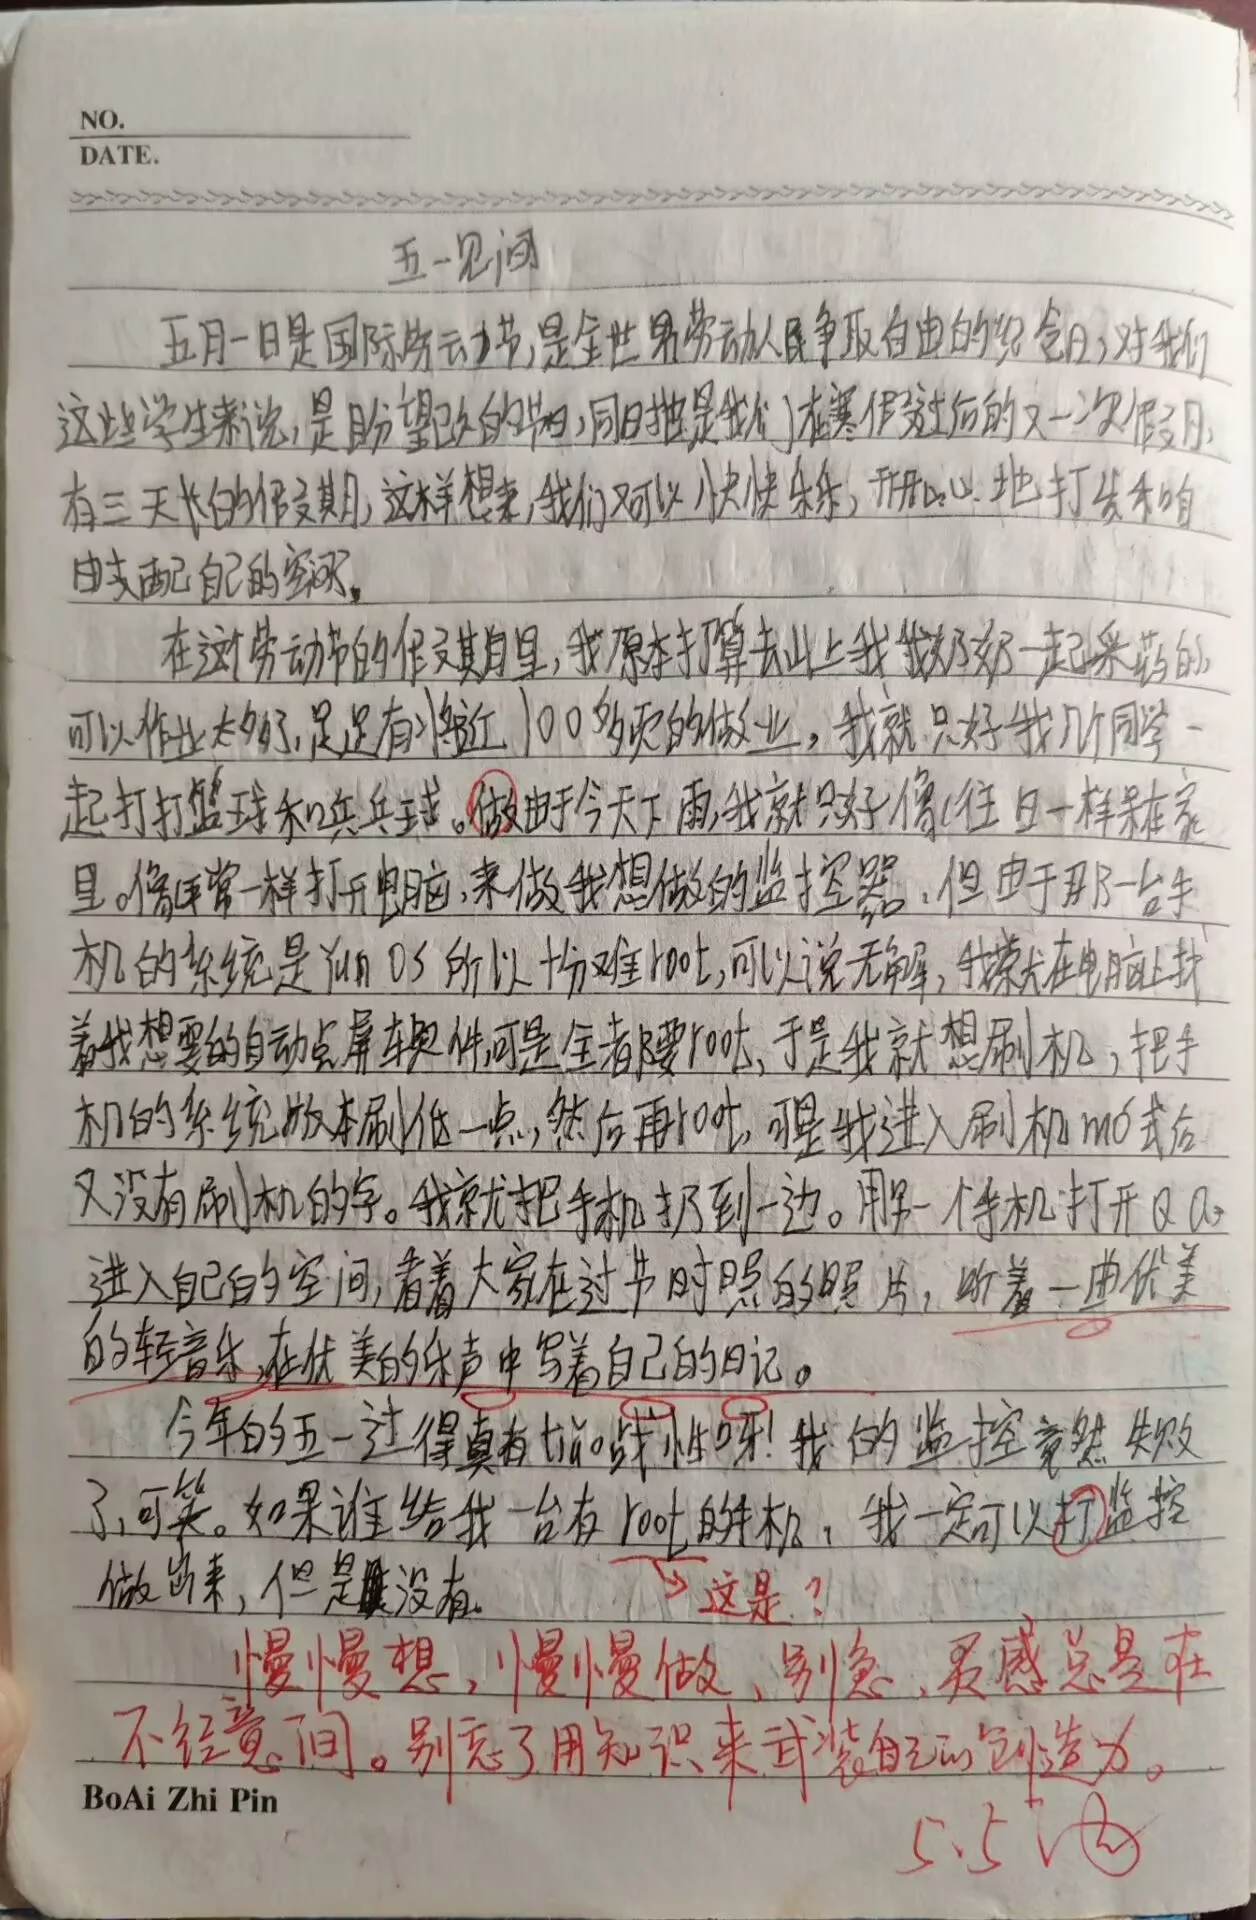 NO.
DATE.
五一见闻
五月一日是国际劳动节,是全世界劳动人民争取自由的纪念日,对我们
这些学生来说,是盼望已久的节日,同时也是我们在寒假过后的又一次假日,
有三天长的假期,这样想来,我们又可以快快乐乐,开开心心地打发和自
由支配自己的空闲。
在这个劳动节的假期里,我原本打算去山上我我奶奶一起采药的,
可以作业太多了,足足有将近100多页的做业,我就只好我几个同学一
起打打篮球和乒乓球。做由于今天下雨,我就只好像往日一样呆在家
里。像平常一样打开电脑,来做我想做的监控器,但由于那一台手
机的系统是Yun OS所以十分难root,可以说无解,我就在电脑上找
着我想要的自动点屏软件,可是全都要root,于是我就想刷机,把手
机的系统版本刷低一点,然后再root,可是我进入刷机mo式后
又没有刷机的字。我就把手机扔到一边。用另一个手机打开QQ,
进入自己的空间,看着大家在过节时照的照片,听着一曲优美
的轻音乐,在优美的乐声中写着自己的日记。
今年的五一过得真有tiao战性呀!我的监控竟然失败
了,可笑。如果谁给我一台有root的手机,我一定可以打监控
做出来,但是没有。
这是?
慢慢想,慢慢做,别急,灵感总是在
不经意间。别忘了用知识来武装自己的创造力。
BoAi Zhi Pin
5.5